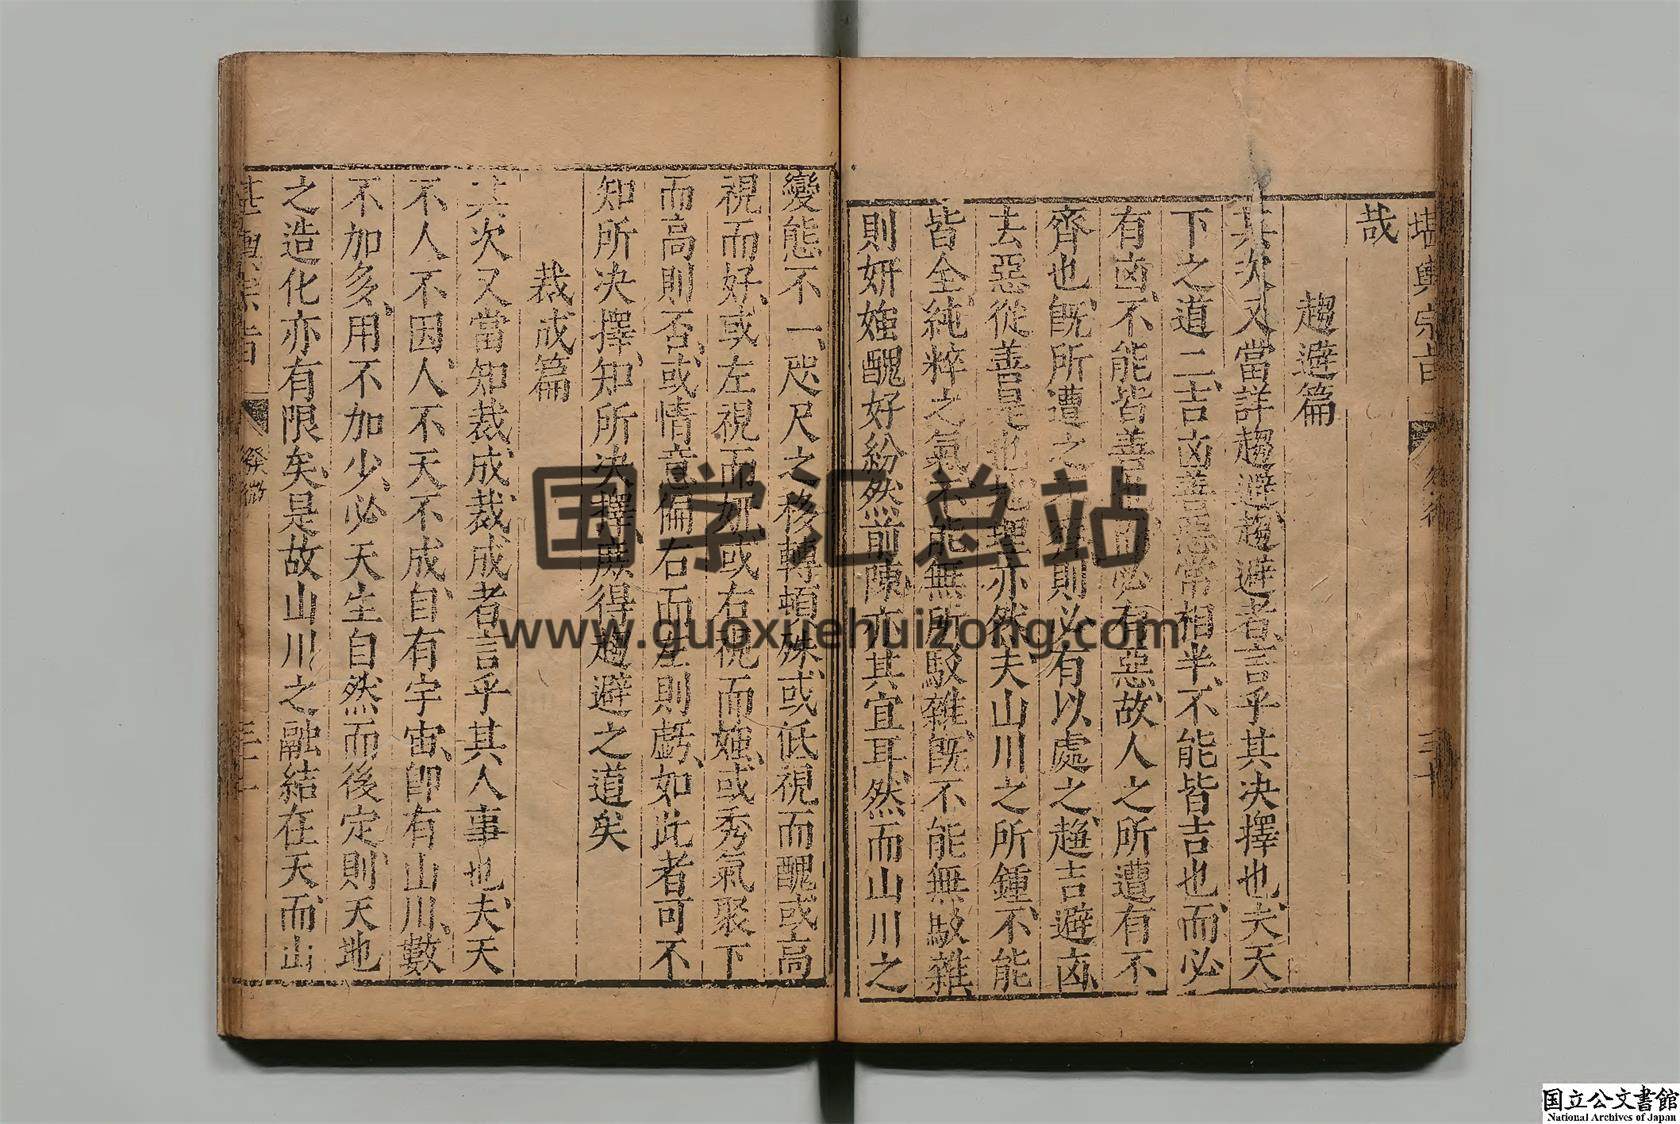 堪輿宗旨
哉
趨避篇
其次又當詳趨避趨避者言乎其決擇也夫天
下之道二吉凶善惡常相半不能皆吉也而必
有凶不能皆善也而必有惡故人之所遭有不
齊也既所遭之不齊則必有以處之趨吉避凶
去惡從善是也地理亦然夫山川之所鍾不能
皆全純粹之氣不能無所駁雜既不能無駁雜
則妍媸醜好紛然前陳亦其宜耳然而山川之
變態不一咫尺之移轉頓殊或低視而醜或高
視而好或左視而妍或右視而媸或秀氣聚下
而高則否或情意偏右而左則虧如此者可不
知所決擇知所決擇庶得趨避之道矣
裁成篇
其次又當知裁成裁成者言乎其人事也夫天
不人不因人不天不成自有宇宙即有山川數
不加多用不加少必天生自然而後定則天地
之造化亦有限矣是故山川之融結在天而山
国学汇总站
www.guoxuehuizong.com
国立公文書館
National Archives of Japan